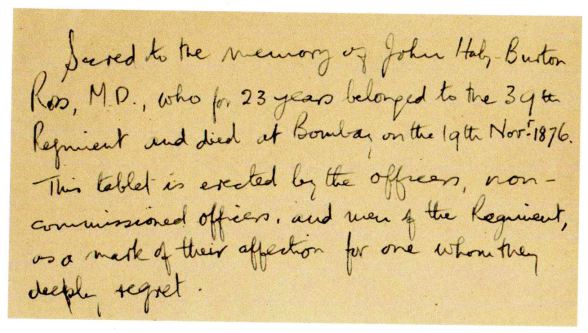 Sacred to the memory of John Haly-Burton
Ross, M.D., who for 23 years belonged to the 39th
Regiment and died at Bombay, on the 19th Novr. 1876.
This tablet is erected by the officers, non-
commissioned officers, and men of the Regiment,
as a mark of their affection for one whom they
deeply regret.